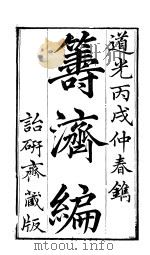 道光丙戌仲春鐫
籌濟編
詒硏齋藏版
mtoou.info